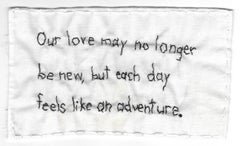 Our love may no longer
be new, but each day
feels like an adventure.